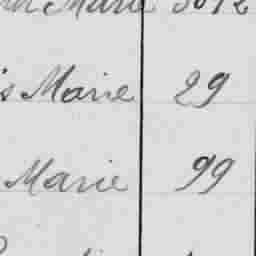 Marie 3012
s Marie 29
Marie 99